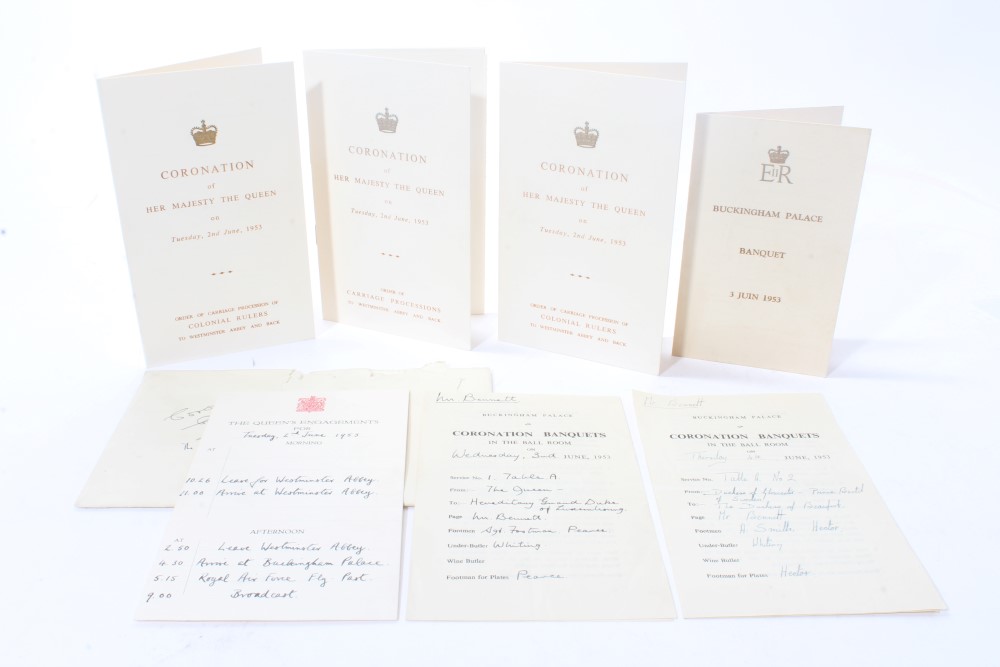 CORONATION
of
HER MAJESTY THE QUEEN
on
Tuesday, 2nd June, 1953
ORDER OF CARRIAGE PROCESSION OF
COLONIAL RULERS
TO WESTMINSTER ABBEY AND BACK
CORONATION
of
HER MAJESTY THE QUEEN
on
Tuesday, 2nd June, 1953
ORDER OF
CARRIAGE PROCESSIONS
TO WESTMINSTER ABBEY AND BACK
CORONATION
of
HER MAJESTY THE QUEEN
on
Tuesday, 2nd June, 1953
ORDER OF CARRIAGE PROCESSION OF
COLONIAL RULERS
TO WESTMINSTER ABBEY AND BACK
EIIR
BUCKINGHAM PALACE
BANQUET
3 JUIN 1953
THE QUEEN'S ENGAGEMENTS
FOR
Tuesday, 2nd June 1953
MORNING
AT
10.26 Leave for Westminster Abbey.
11.00 Arrive at Westminster Abbey.
AFTERNOON
AT
2.50 Leave Westminster Abbey.
4.30 Arrive at Buckingham Palace.
5.15 Royal Air Force Fly Past.
9.00 Broadcast.
Mr Bennett
BUCKINGHAM PALACE
CORONATION BANQUETS
IN THE BALL ROOM
ON
Wednesday, 3rd JUNE, 1953
Service No. 1. Table A
From The Queen
To Hereditary Grand Duke
of Luxembourg
Page Mr Bennett
Footman Sgt. Footman Pearce
Under-Butler Whiting
Wine Butler
Footman for Plates Pearce
Mr Bennett
BUCKINGHAM PALACE
CORONATION BANQUETS
IN THE BALL ROOM
ON
JUNE, 1953
Service No. Table A No 2
From Duchess of Gloucester
To The Duchess of
Page Mr Bennett
Footman Smith Hester
Under-Butler Whiting
Wine Butler
Footman for Plates Hester